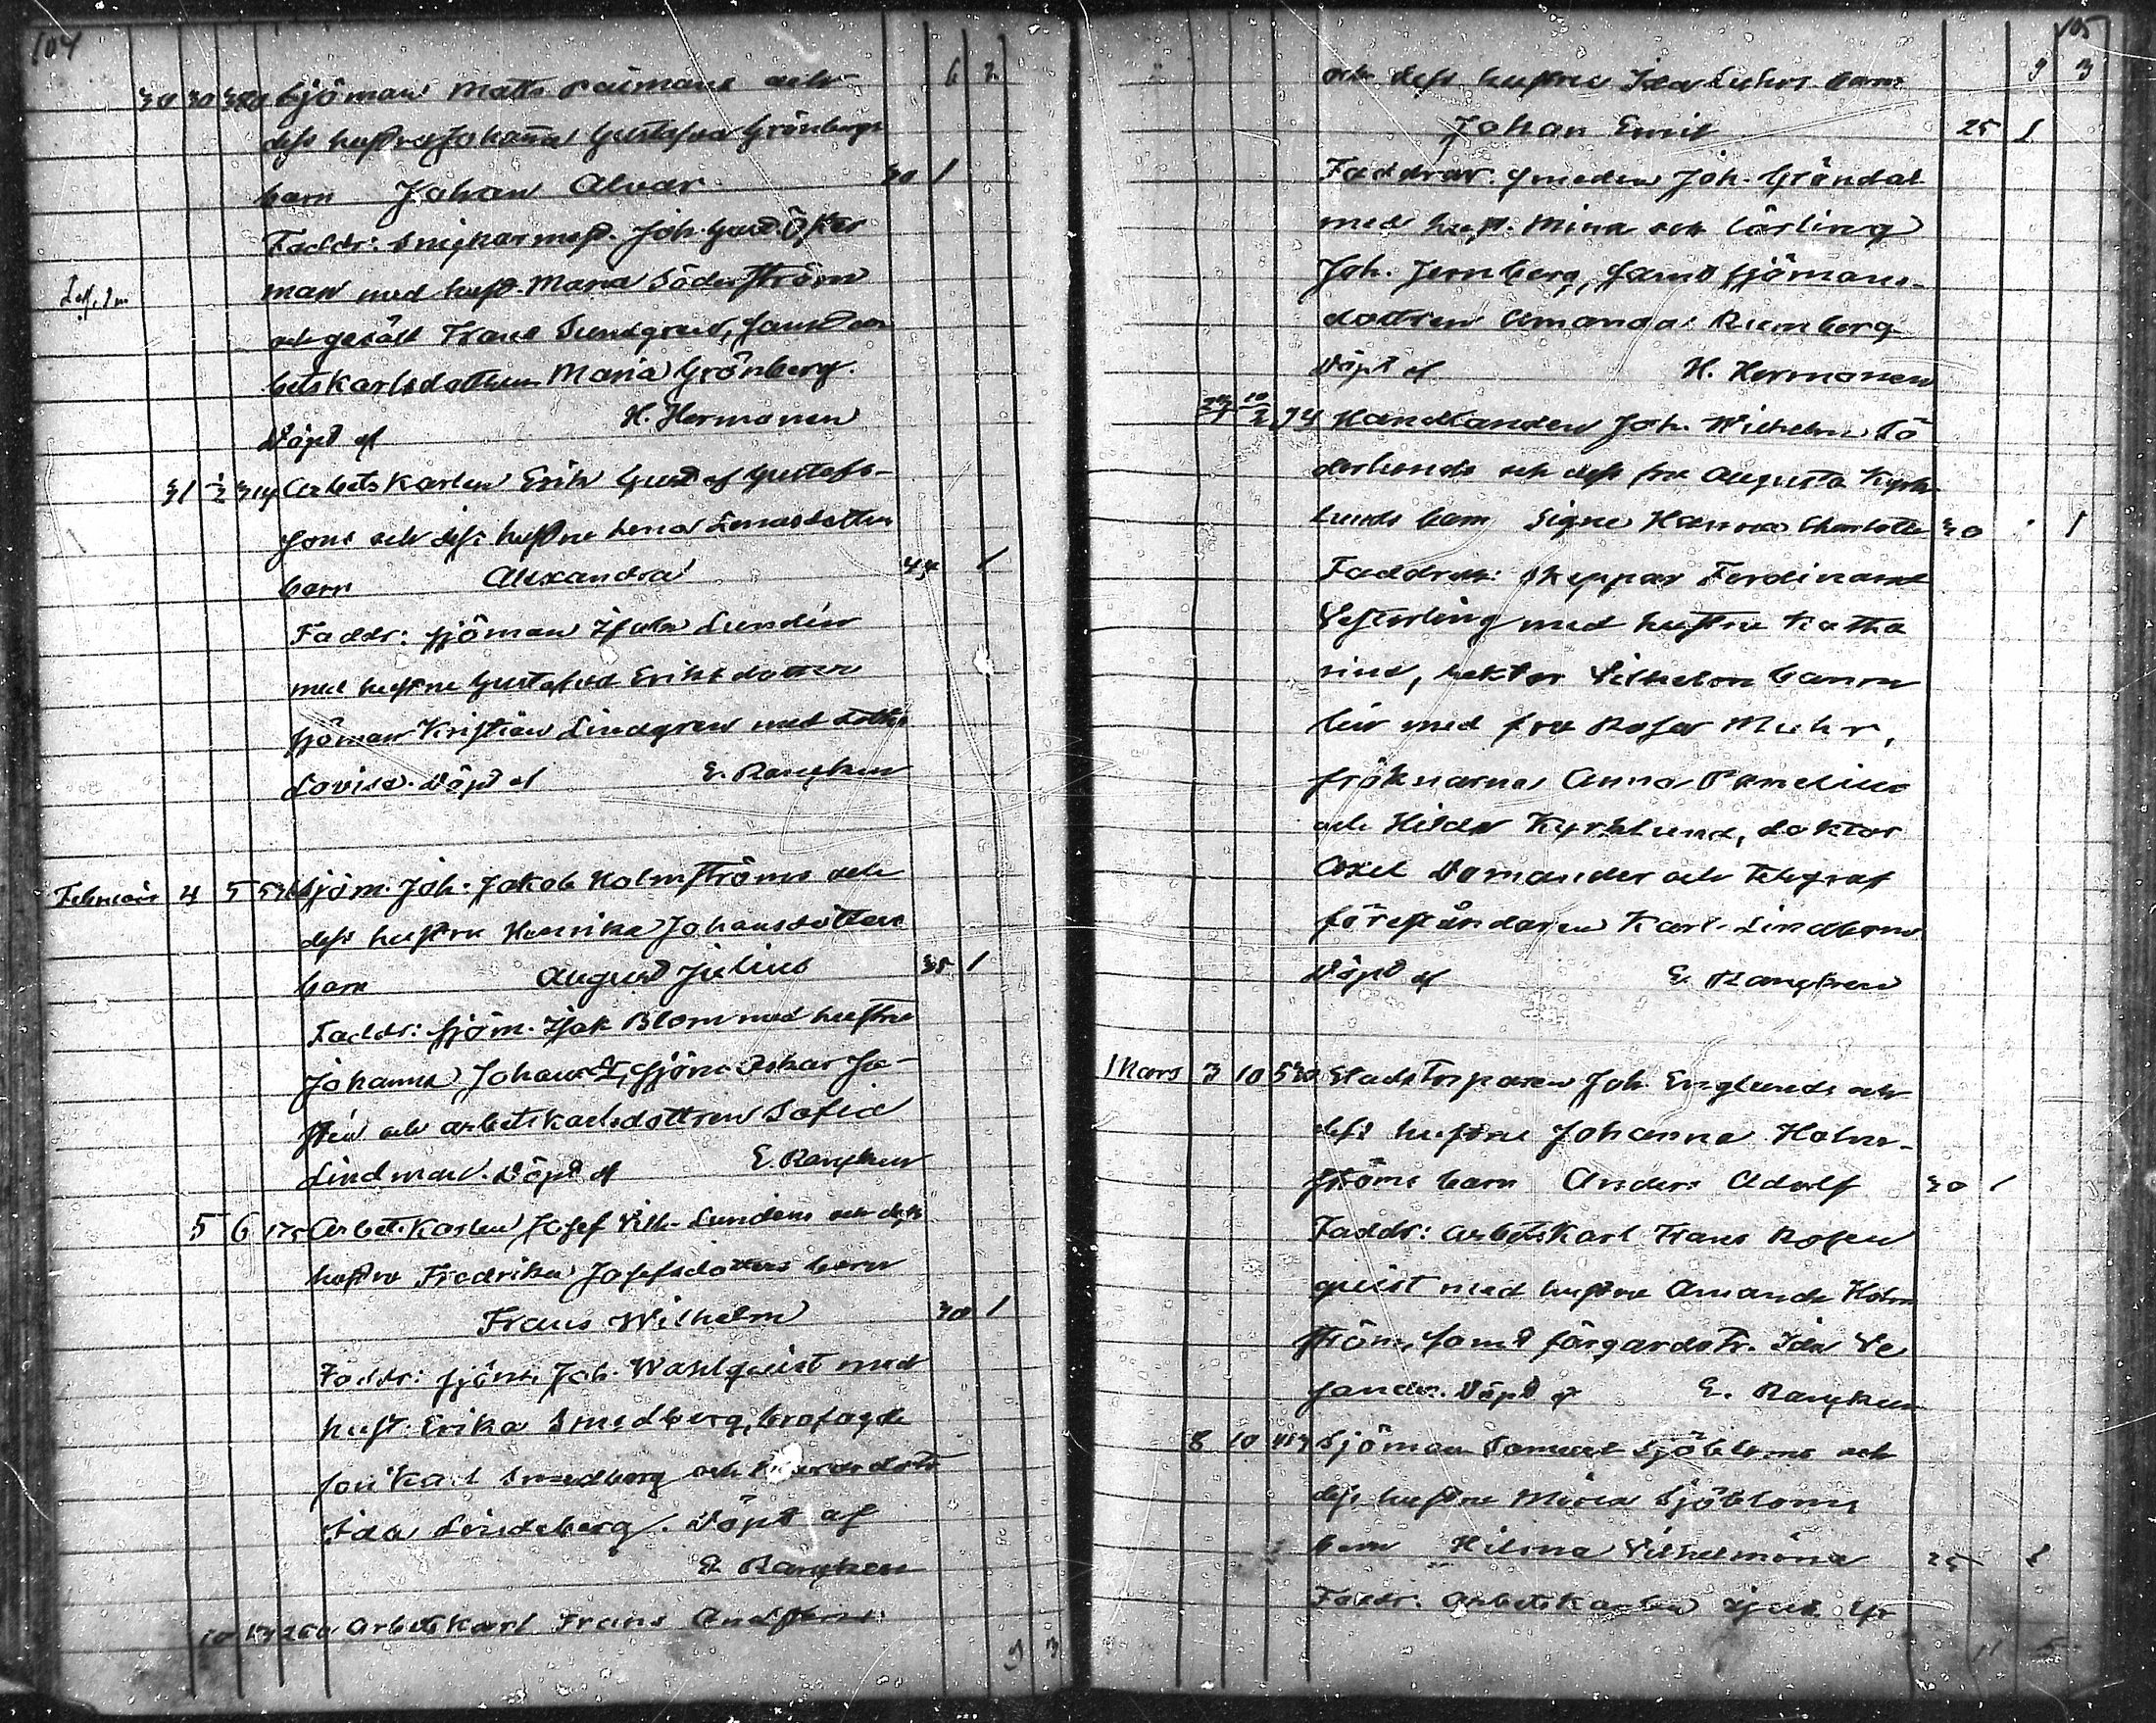 104
6 2
30 30 Sjöman Matts och
dess hustru Johanna Gustafva Grönbergs
barn Johan Alvar 30 1
Faddr: Snickarmäst. Joh. Gust. Öster
man med hust. Maria Söderström
och gesäll Frans Sundgren, samt ar
betskarlsdottren Maria Grönberg.
Döpt af H. Hermonen
31 Arbetskarlen Erik Gustaf Gustafs-
sons och dess hustru Lena
barn Alexandra 44 1
Faddr: sjöman Isak Lundén
med hustru Gustafva Eriksdotter
sjöman Kristian Lindgren med dotter
Lovisa. Döpt af E. Rancken
Februari 4 5 Sjöm. Joh. Jakob Holmströms och
dess hustru Henrika Johansdotters
barn August Julius 35 1
Faddr: sjöm. Isak Blom med hustru
Johanna Johansdr, sjöm. Oskar
och arbetskarlsdottren Sofia
Lindman. Döpt af E. Rancken
5 6 175 Arbetskarlen Josef Vilh. Lundéns och dess
hustru Fredrika Josefsdotters barn
Frans Wilhelm 30 1
Faddr: sjöm. Joh. Wahlquist med
hust. Erika Smedberg,
son Karl Smedberg och
Ida Lindeberg. Döpt af
E. Rancken
10 Arbetskarl Frans
9 3
105
9 3
och dess hustru Ida barn
Johan Emil 25 1
Faddrar. smeden Joh. Gröndal
med hust. Mina och lärling
Joh. Jernberg, samt sjömans-
dottren Amanda Rumberg
Döpt af H. Hermonen
74 Handlanden Joh. Wilhelm Sö
derlunds och dess fru Augusta Kyrk
lunds barn Signe Hanna Charlotta 30 1
Faddrar: skeppar Ferdinand
Vesterling med hustru Katha
rina, rektor Vilhelm
med fru Rosa Muhr,
fröknarna Anna
och Hilda Kyrklund, doktor
Axel Domander och telegraf
föreståndaren Karl Lindbom
Döpt af E. Rancken
Mars 3 10 Stadstorparen Joh. Englunds och
dess hustru Johanna Holm-
ströms barn Anders Adolf 30 1
Faddr: arbetskarl Frans Rosen
quist med hustru Amanda Holm
ström, samt färgardotr. Ida Ve
sander. Döpt af E. Rancken
8 10 Sjöman Samuel Sjöbloms och
dess hustru Maria Sjöbloms
barn Hilma Vilhelmina 25 1
Faddr. arbetskarlen
11 5